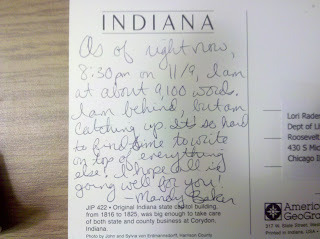 INDIANA
As of right now,
8:30pm on 11/9, I am
at about 9,100 words.
I am behind, but am
catching up. It's so hard
to find time to write
on top of everything
else. I hope all is
going well for you!
- Mandy Baken
JIP 422 • Original Indiana state capitol building,
from 1816 to 1825, was big enough to take care
of both state and county business at Corydon,
Indiana.
Photo by John and Sylvia von Harrison County
Lori Rades
Dept of Li
Roosevelt
430 S Mic
Chicago I
America
GeoGra
317 W. State Street, West
Printed in Indiana, USA •